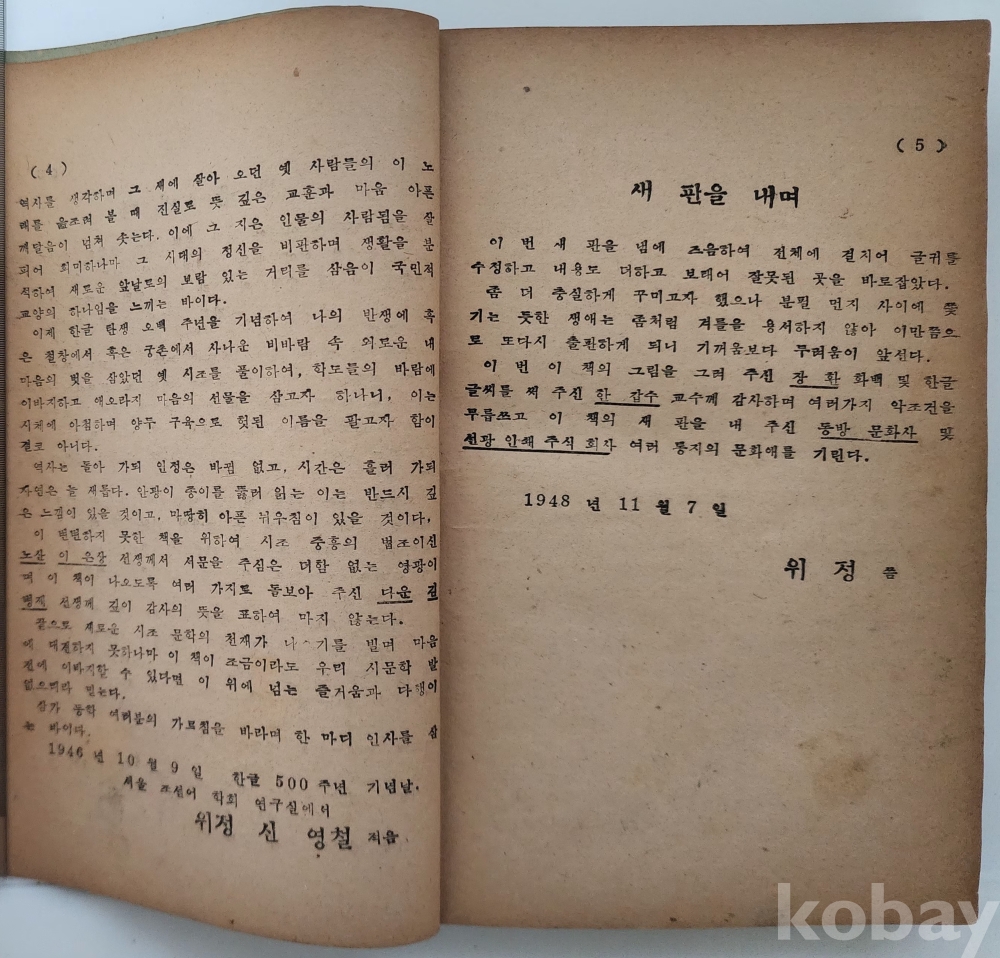 ( 4 )
역사를 생각하며 그 때에 살아 오던 옛 사람들의 이 노
래를 읊조려 볼 때 진실로 뜻 깊은 교훈과 마음 아픈
깨달음이 넘쳐 솟는다. 이에 그 지은 인물의 사람됨을 살
피어 희미하나마 그 시대의 정신을 비판하며 생활을 분
석하여 새로운 앞날로의 보람 있는 거리를 삼음이 국민적
교양의 하나임을 느끼는 바이다.
이제 한글 탄생 오백 주년을 기념하여 나의 반생에 혹
은 철창에서 혹은 궁촌에서 사나운 비바람 속 외로운 내
마음의 벗을 삼았던 옛 시조를 풀이하여, 학도들의 바람에
이바지하고 애오라지 마음의 선물을 삼고자 하나니, 이는
시체에 아첨하며 양두 구육으로 헛된 이름을 팔고자 함이
결코 아니다.
역사는 돌아 가되 인정은 바뀜 없고, 시간은 흘러 가되
자연은 늘 새롭다. 안광이 종이를 뚫러 읽는 이는 반드시 깊
은 느낌이 있을 것이고, 마땅히 아픈 뉘우침이 있을 것이다,
이 변변하지 못한 책을 위하여 시조 중흥의 법조이신
노산 이 은상 선생께서 서문을 주심은 더할 없는 영광이
며 이 책이 나오도록 여러 가지로 돌보아 주신 다운 김
병제 선생께 깊이 감사의 뜻을 표하여 마지 않는다.
끝으로 새로운 시조 문학의 천재가 나 기를 빌며 마음
에 대견하지 못하나마 이 책이 조금이라도 우리 시문학 발
전에 이바지할 수 있다면 이 위에 넘는 즐거움과 다행이
없으리라 믿는다.
삼가 동학 여러분의 가르침을 바라며 한 마디 인사를 삼
는 바이다.
1946 년 10 월 9 일 한글 500 주년 기념날,
서울 조선어 학회 연구실에서
위정 신 영철 적음
( 5 )
새 판을 내며
이 번 새 판을 냄에 즈음하여 전체에 걸치어 글귀를
수정하고 내용도 더하고 보태어 잘못된 곳을 바로잡았다.
좀 더 충실하게 꾸미고자 했으나 분필 먼지 사이에 쫓
기는 듯한 생애는 좀처럼 겨를을 용서하지 않아 이만쯤으
로 또다시 출판하게 되니 기꺼움보다 두려움이 앞선다.
이 번 이 책의 그림을 그려 주신 장 환 화백 및 한글
글씨를 써 주신 한 갑수 교수께 감사하며 여러가지 악조건을
무릅쓰고 이 책의 새 판을 내 주신 동방 문화사 및
선광 인쇄 주식 회사 여러 동지의 문화애를 기린다.
1948 년 11 월 7 일
위 정 씀
kobay